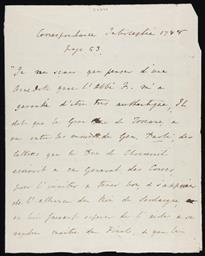 Correspondance Interceptée 1788
Page 53.
"Je ne sais que penser d'une
Anecdote que l'Abbé F. m'a
garantie d'etre très authentique, Il
dit que le Gr.. Duc de Toscane, a
eu entre les mains de Gen. Paoli, des
lettres que le Duc de Choiseul
écrivait a ce General des Corses,
pour l'inviter a tenir bon & s'appuier
de l'alliance du Roi de Sardaigne
en lui faisant esperer de l'aider a se
rendre maitre du Finale, & que l'on